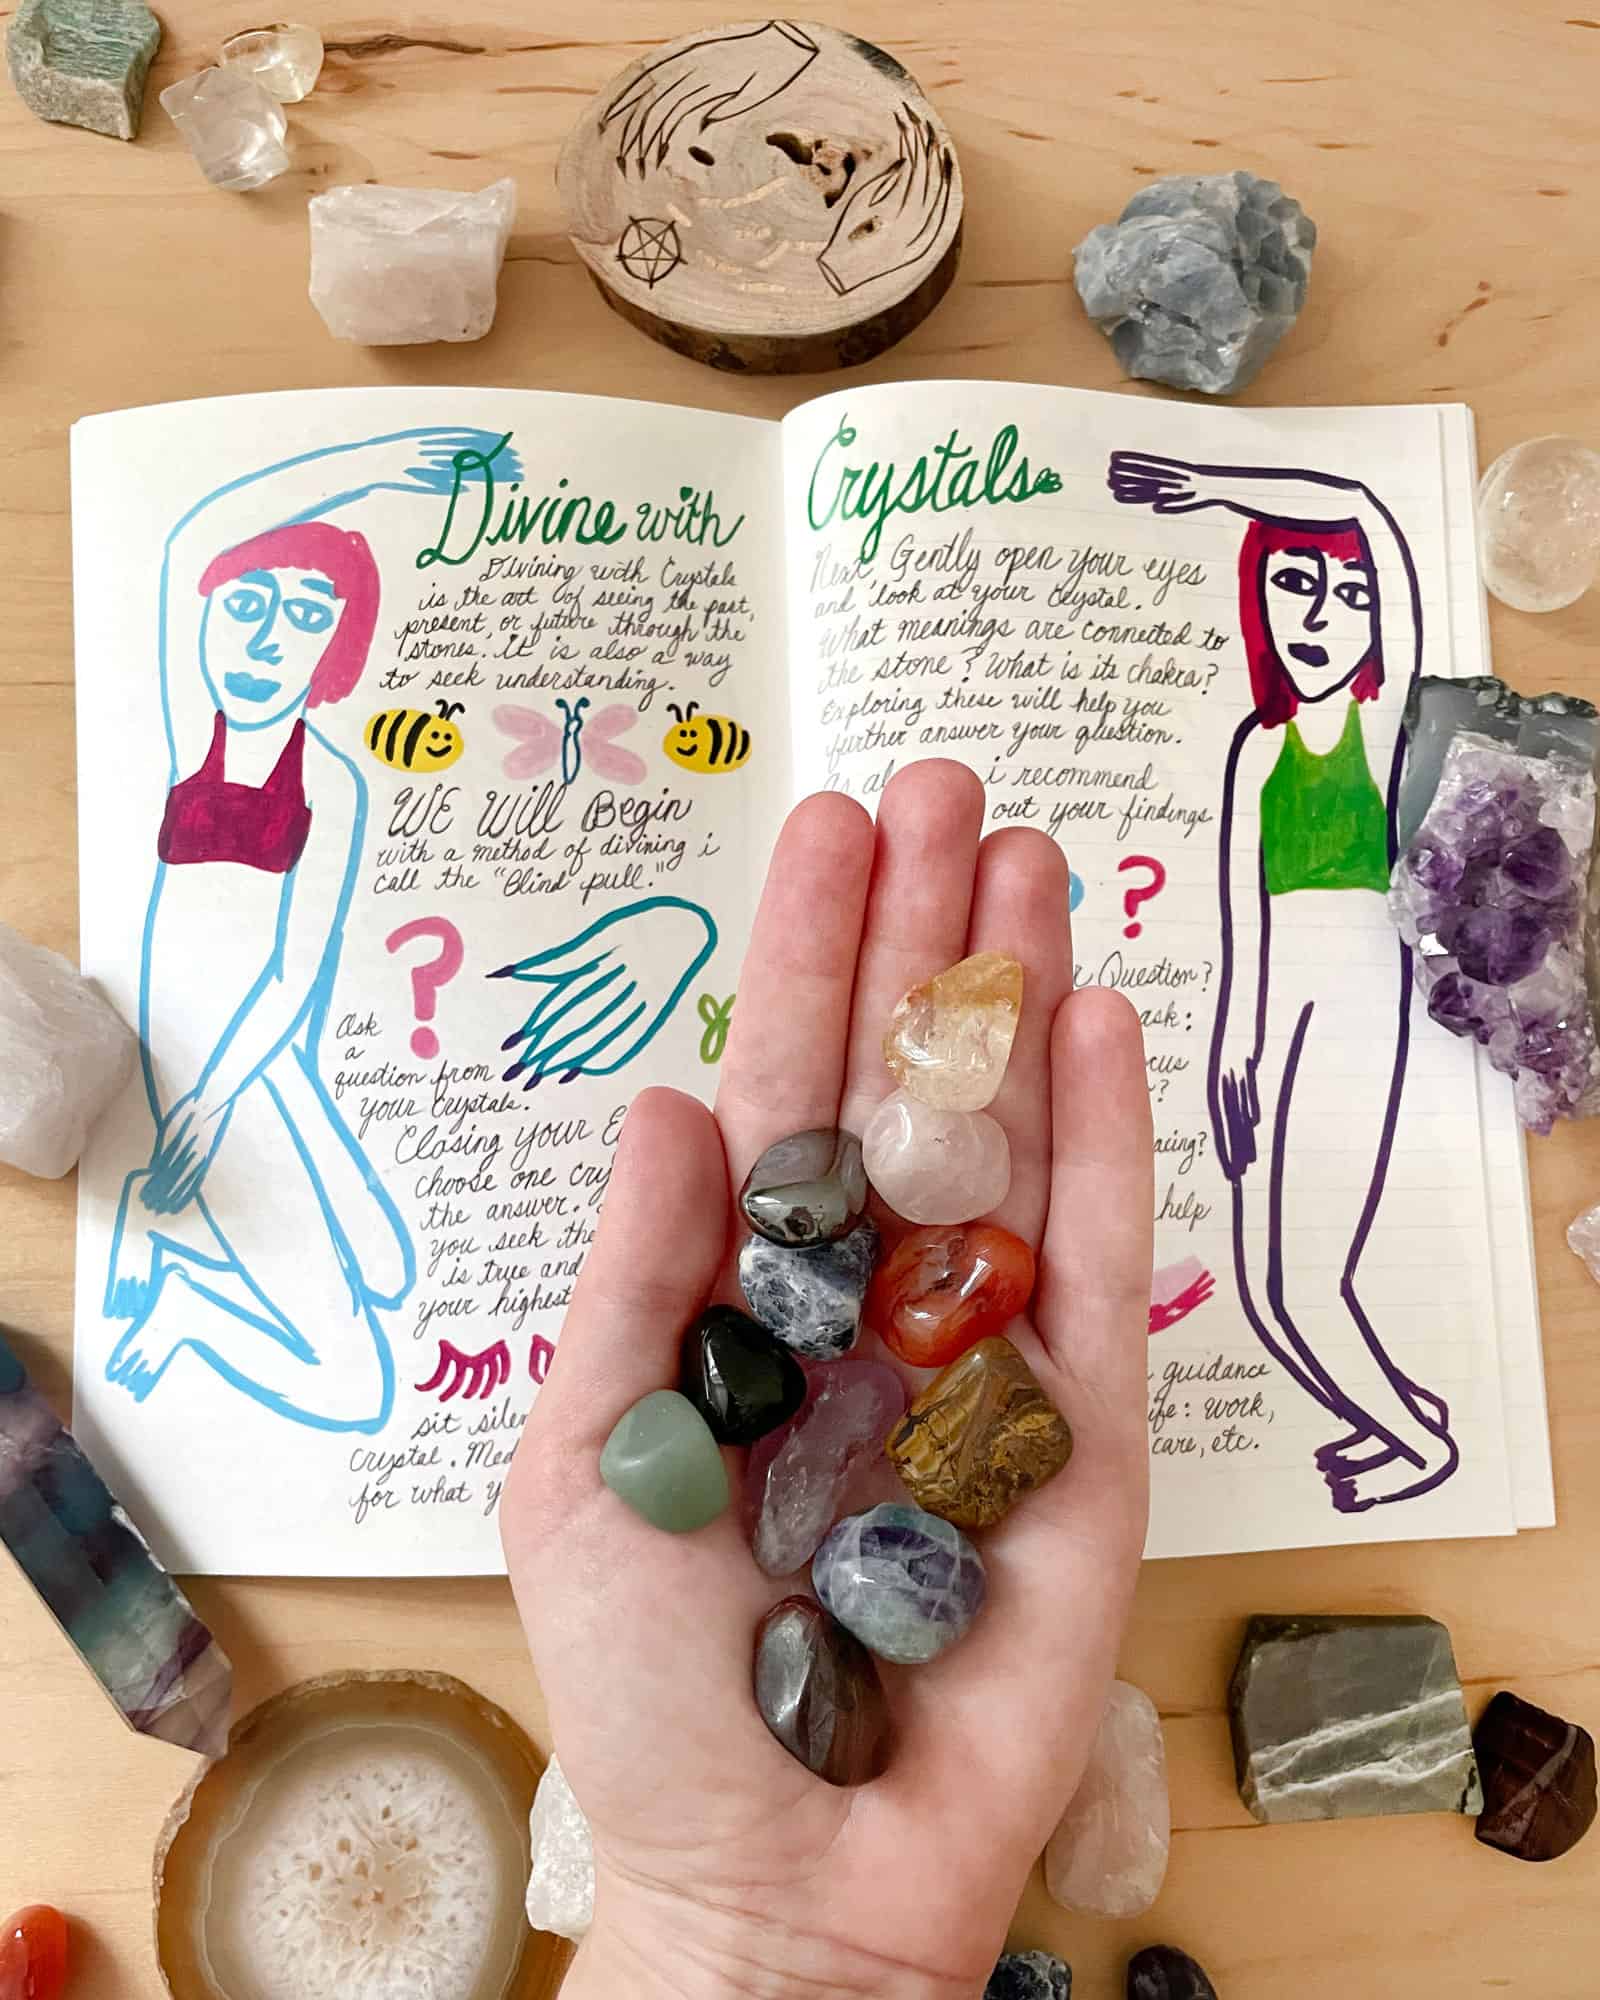 Divine with
Divining with Crystals
is the art of seeing the past,
present, or future through the
stones. It is also a way
to seek understanding.
WE Will Begin
with a method of divining i
call the "Blind pull."
Ask
a
question from
your Crystals.
Closing your E
choose one cry
the answer.
you seek the
is true and
your highest
sit silen
crystal. Med
for what y
Crystals
Next, Gently open your eyes
and look at your crystal.
What meanings are connected to
the stone? What is its chakra?
Exploring these will help you
further answer your question.
as al i recommend
out your findings
r Question?
ask:
cus
?
acing?
help
guidance
ife: work,
care, etc.